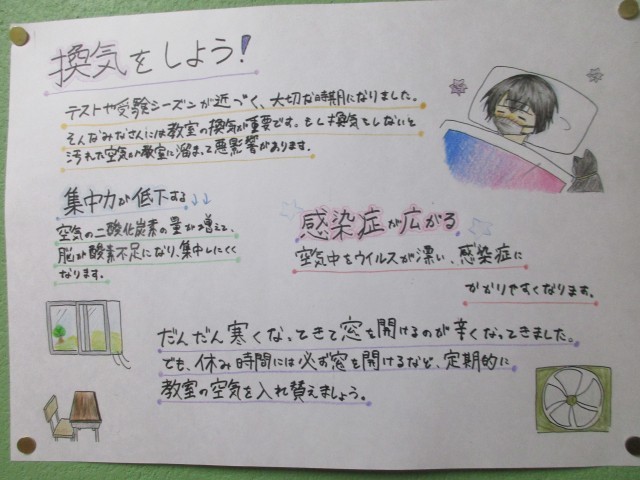 換気をしよう!
テストや受験シーズンが近づく、大切な時期になりました。
そんなみなさんには教室の換気が重要です。もし換気をしないと
汚れた空気が教室に溜まって悪影響があります。
集中力が低下する↓↓
空気の二酸化炭素の量が増えて、
脳が酸素不足になり、集中しにくく
なります。
感染症が広がる
空気中をウイルスが漂い、感染症に
かかりやすくなります。
だんだん寒くなってきて窓を開けるのが辛くなってきました。
でも、休み時間には必ず窓を開けるなど、定期的に
教室の空気を入れ替えましょう。